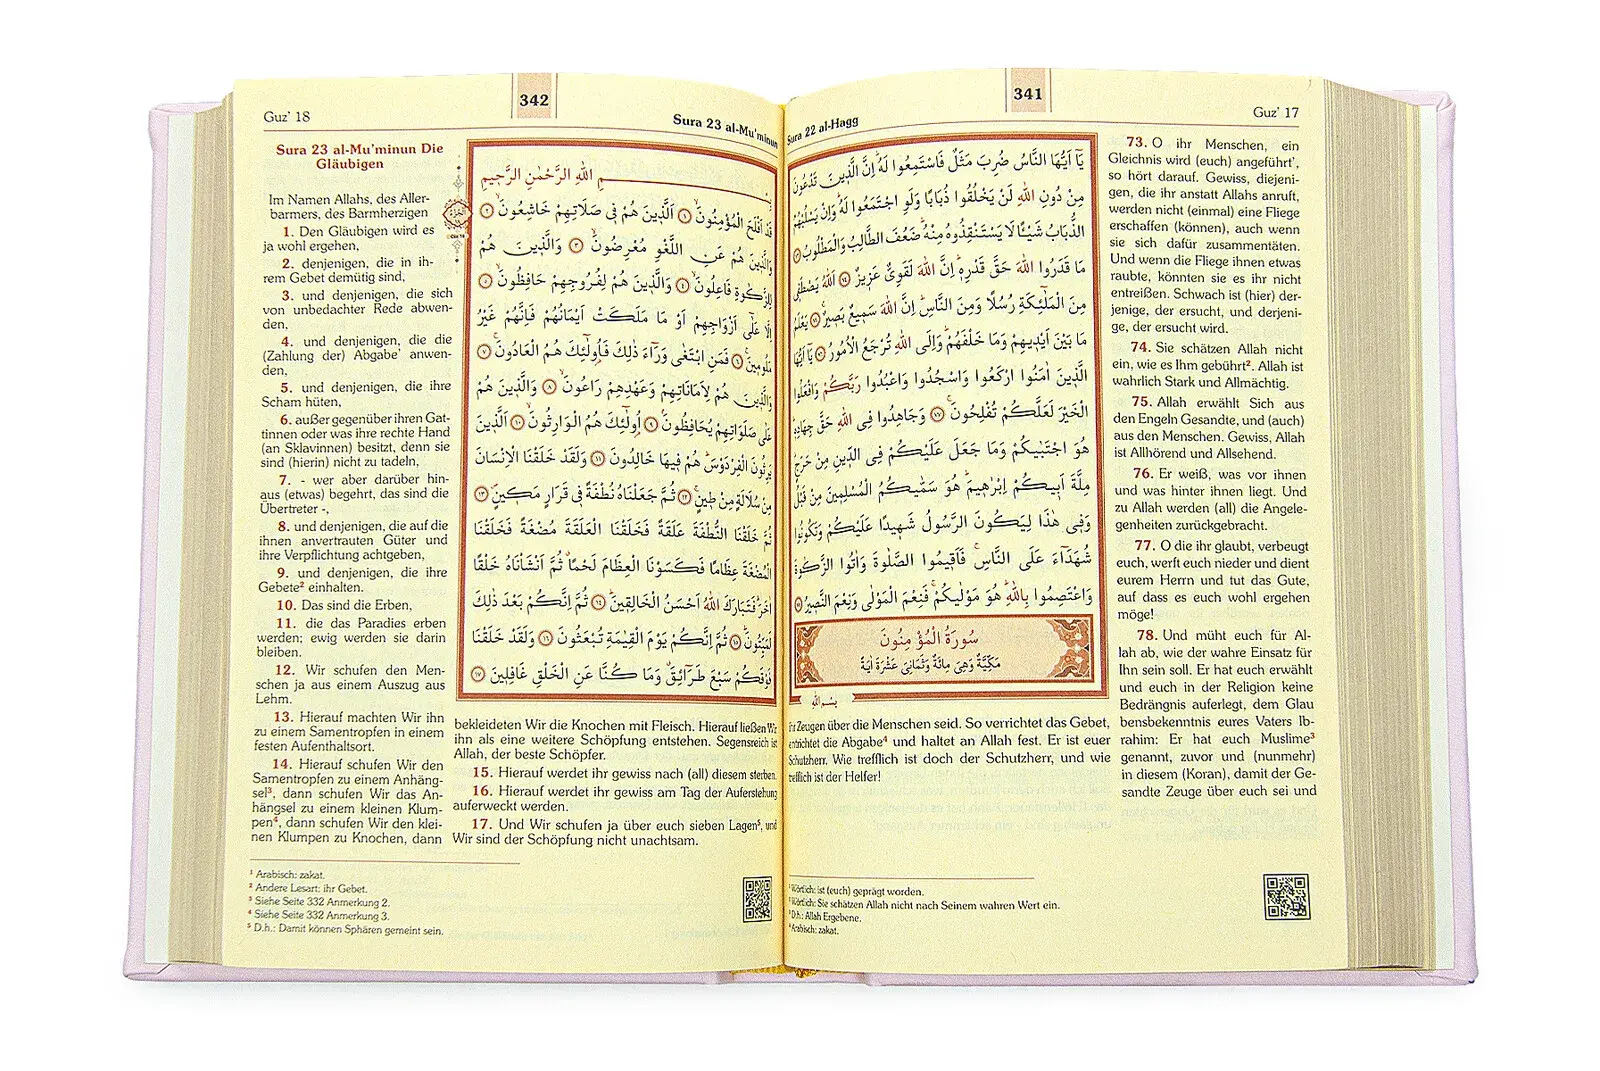 341
Guz’ 17
Sura 22 al-Hagg
يَٓا اَيُّهَا النَّاسُ ضُرِبَ مَثَلٌ فَاسْتَمِعُوا لَهُ اِنَّ الَّذ۪ينَ تَدْعُونَ
مِنْ دُونِ اللّٰهِ لَنْ يَخْلُقُوا ذُبَابًا وَلَوِ اجْتَمَعُوا لَهُ وَاِنْ يَسْلُبْهُمُ
الذُّبَابُ شَيْـًٔا لَا يَسْتَنْقِذُوهُ مِنْهُ ضَعُفَ الطَّالِبُ وَالْمَطْلُوبُ ٧٣
مَا قَدَرُوا اللّٰهَ حَقَّ قَدْرِه۪ اِنَّ اللّٰهَ لَقَوِيٌّ عَز۪يزٌ ٧٤ اَللّٰهُ يَصْطَف۪ي
مِنَ الْمَلٰٓئِكَةِ رُسُلًا وَمِنَ النَّاسِ اِنَّ اللّٰهَ سَم۪يعٌ بَص۪يرٌ ٧٥ يَعْلَمُ
مَا بَيْنَ اَيْد۪يهِمْ وَمَا خَلْفَهُمْ وَاِلَى اللّٰهِ تُرْجَعُ الْاُمُورُ ٧٦ يَٓا اَيُّهَا
الَّذ۪ينَ اٰمَنُوا ارْكَعُوا وَاسْجُدُوا وَاعْبُدُوا رَبَّكُمْ وَافْعَلُوا
الْخَيْرَ لَعَلَّكُمْ تُفْلِحُونَ ٧٧ وَجَاهِدُوا فِي اللّٰهِ حَقَّ جِهَادِه۪
هُوَ اجْتَبٰيكُمْ وَمَا جَعَلَ عَلَيْكُمْ فِي الدّ۪ينِ مِنْ حَرَجٍ
مِلَّةَ اَب۪يكُمْ اِبْرٰه۪يمَ هُوَ سَمّٰيكُمُ الْمُسْلِم۪ينَ مِنْ قَبْلُ
وَف۪ي هٰذَا لِيَكُونَ الرَّسُولُ شَه۪يدًا عَلَيْكُمْ وَتَكُونُوا
شُهَدَٓاءَ عَلَى النَّاسِ فَاَق۪يمُوا الصَّلٰوةَ وَاٰتُوا الزَّكٰوةَ
وَاعْتَصِمُوا بِاللّٰهِ هُوَ مَوْلٰيكُمْ فَنِعْمَ الْمَوْلٰى وَنِعْمَ النَّص۪يرُ ٧٨
سُورَةُ الْمُؤْمِنُونَ
مَكِّيَّةٌ وَهِيَ مِائَةٌ وَثَمَانِيَ عَشْرَةَ اٰيَةً
بِسْمِ اللّٰهِ
73. O ihr Menschen, ein
Gleichnis wird (euch) angeführt¹,
so hört darauf. Gewiss, diejeni-
gen, die ihr anstatt Allahs anruft,
werden nicht (einmal) eine Fliege
erschaffen (können), auch wenn
sie sich dafür zusammentäten.
Und wenn die Fliege ihnen etwas
raubte, könnten sie es ihr nicht
entreißen. Schwach ist (hier) der-
jenige, der ersucht, und derjeni-
ge, der ersucht wird.
74. Sie schätzen Allah nicht
ein, wie es Ihm gebührt². Allah ist
wahrlich Stark und Allmächtig.
75. Allah erwählt Sich aus
den Engeln Gesandte, und (auch)
aus den Menschen. Gewiss, Allah
ist Allhörend und Allsehend.
76. Er weiß, was vor ihnen
und was hinter ihnen liegt. Und
zu Allah werden (all) die Angele-
genheiten zurückgebracht.
77. O die ihr glaubt, verbeugt
euch, werft euch nieder und dient
eurem Herrn und tut das Gute,
auf dass es euch wohl ergehen
möge!
78. Und müht euch für Al-
lah ab, wie der wahre Einsatz für
Ihn sein soll. Er hat euch erwählt
und euch in der Religion keine
Bedrängnis auferlegt, dem Glau
bensbekenntnis eures Vaters Ib-
rahim: Er hat euch Muslime³
genannt, zuvor und (nunmehr)
in diesem (Koran), damit der Ge-
sandte Zeuge über euch sei und
ihr Zeugen über die Menschen seid. So verrichtet das Gebet,
entrichtet die Abgabe⁴ und haltet an Allah fest. Er ist euer
Schutzherr. Wie trefflich ist doch der Schutzherr, und wie
trefflich ist der Helfer!
¹ Wörtlich: ist (euch) geprägt worden.
² Wörtlich: Sie schätzen Allah nicht nach Seinem wahren Wert ein.
³ D.h.: Allah Ergebene.
⁴ Arabisch: zakat.
342
Guz’ 18
Sura 23 al-Mu’minun
بِسْمِ اللّٰهِ الرَّحْمٰنِ الرَّح۪يمِ
قَدْ اَفْلَحَ الْمُؤْمِنُونَ ١ اَلَّذ۪ينَ هُمْ ف۪ي صَلَاتِهِمْ خَاشِعُونَ ٢
وَالَّذ۪ينَ هُمْ عَنِ اللَّغْوِ مُعْرِضُونَ ٣ وَالَّذ۪ينَ هُمْ
لِلزَّكٰوةِ فَاعِلُونَ ٤ وَالَّذ۪ينَ هُمْ لِفُرُوجِهِمْ حَافِظُونَ ٥
اِلَّا عَلٰٓى اَزْوَاجِهِمْ اَوْ مَا مَلَكَتْ اَيْمَانُهُمْ فَاِنَّهُمْ غَيْرُ
مَلُوم۪ينَ ٦ فَمَنِ ابْتَغٰى وَرَٓاءَ ذٰلِكَ فَاُولٰٓئِكَ هُمُ الْعَادُونَ ٧
وَالَّذ۪ينَ هُمْ لِاَمَانَاتِهِمْ وَعَهْدِهِمْ رَاعُونَ ٨ وَالَّذ۪ينَ هُمْ
عَلٰى صَلَوَاتِهِمْ يُحَافِظُونَ ٩ اُولٰٓئِكَ هُمُ الْوَارِثُونَ ١٠ اَلَّذ۪ينَ
يَرِثُونَ الْفِرْدَوْسَ هُمْ ف۪يهَا خَالِدُونَ ١١ وَلَقَدْ خَلَقْنَا الْاِنْسَانَ
مِنْ سُلَالَةٍ مِنْ ط۪ينٍ ١٢ ثُمَّ جَعَلْنَاهُ نُطْفَةً ف۪ي قَرَارٍ مَك۪ينٍ ١٣
ثُمَّ خَلَقْنَا النُّطْفَةَ عَلَقَةً فَخَلَقْنَا الْعَلَقَةَ مُضْغَةً فَخَلَقْنَا
الْمُضْغَةَ عِظَامًا فَكَسَوْنَا الْعِظَامَ لَحْمًا ثُمَّ اَنْشَأْنَاهُ خَلْقًا
اٰخَرَ فَتَبَارَكَ اللّٰهُ اَحْسَنُ الْخَالِق۪ينَ ١٤ ثُمَّ اِنَّكُمْ بَعْدَ ذٰلِكَ
لَمَيِّتُونَ ١٥ ثُمَّ اِنَّكُمْ يَوْمَ الْقِيٰمَةِ تُبْعَثُونَ ١٦ وَلَقَدْ خَلَقْنَا
فَوْقَكُمْ سَبْعَ طَرَٓائِقَ وَمَا كُنَّا عَنِ الْخَلْقِ غَافِل۪ينَ ١٧
Sura 23 al-Mu’minun Die
Gläubigen
Im Namen Allahs, des Aller-
barmers, des Barmherzigen
1. Den Gläubigen wird es
ja wohl ergehen,
2. denjenigen, die in ih-
rem Gebet demütig sind,
3. und denjenigen, die sich
von unbedachter Rede abwen-
den,
4. und denjenigen, die die
(Zahlung der) Abgabe¹ anwen-
den,
5. und denjenigen, die ihre
Scham hüten,
6. außer gegenüber ihren Gat-
tinnen oder was ihre rechte Hand
(an Sklavinnen) besitzt, denn sie
sind (hierin) nicht zu tadeln,
7. - wer aber darüber hin-
aus (etwas) begehrt, das sind die
Übertreter -,
8. und denjenigen, die auf die
ihnen anvertrauten Güter und
ihre Verpflichtung achtgeben,
9. und denjenigen, die ihre
Gebete² einhalten.
10. Das sind die Erben,
11. die das Paradies erben
werden; ewig werden sie darin
bleiben.
12. Wir schufen den Men-
schen ja aus einem Auszug aus
Lehm.
13. Hierauf machten Wir ihn
zu einem Samentropfen in einem
festen Aufenthaltsort.
14. Hierauf schufen Wir den
Samentropfen zu einem Anhäng-
sel³, dann schufen Wir das An-
hängsel zu einem kleinen Klum-
pen⁴, dann schufen Wir den klei-
nen Klumpen zu Knochen, dann
bekleideten Wir die Knochen mit Fleisch. Hierauf ließen Wir
ihn als eine weitere Schöpfung entstehen. Segensreich ist
Allah, der beste Schöpfer.
15. Hierauf werdet ihr gewiss nach (all) diesem sterben.
16. Hierauf werdet ihr gewiss am Tag der Auferstehung
auferweckt werden.
17. Und Wir schufen ja über euch sieben Lagen⁵, und
Wir sind der Schöpfung nicht unachtsam.
¹ Arabisch: zakat.
² Andere Lesart: ihr Gebet.
³ Siehe Seite 332 Anmerkung 2.
⁴ Siehe Seite 332 Anmerkung 3.
⁵ D.h.: Damit können Sphären gemeint sein.